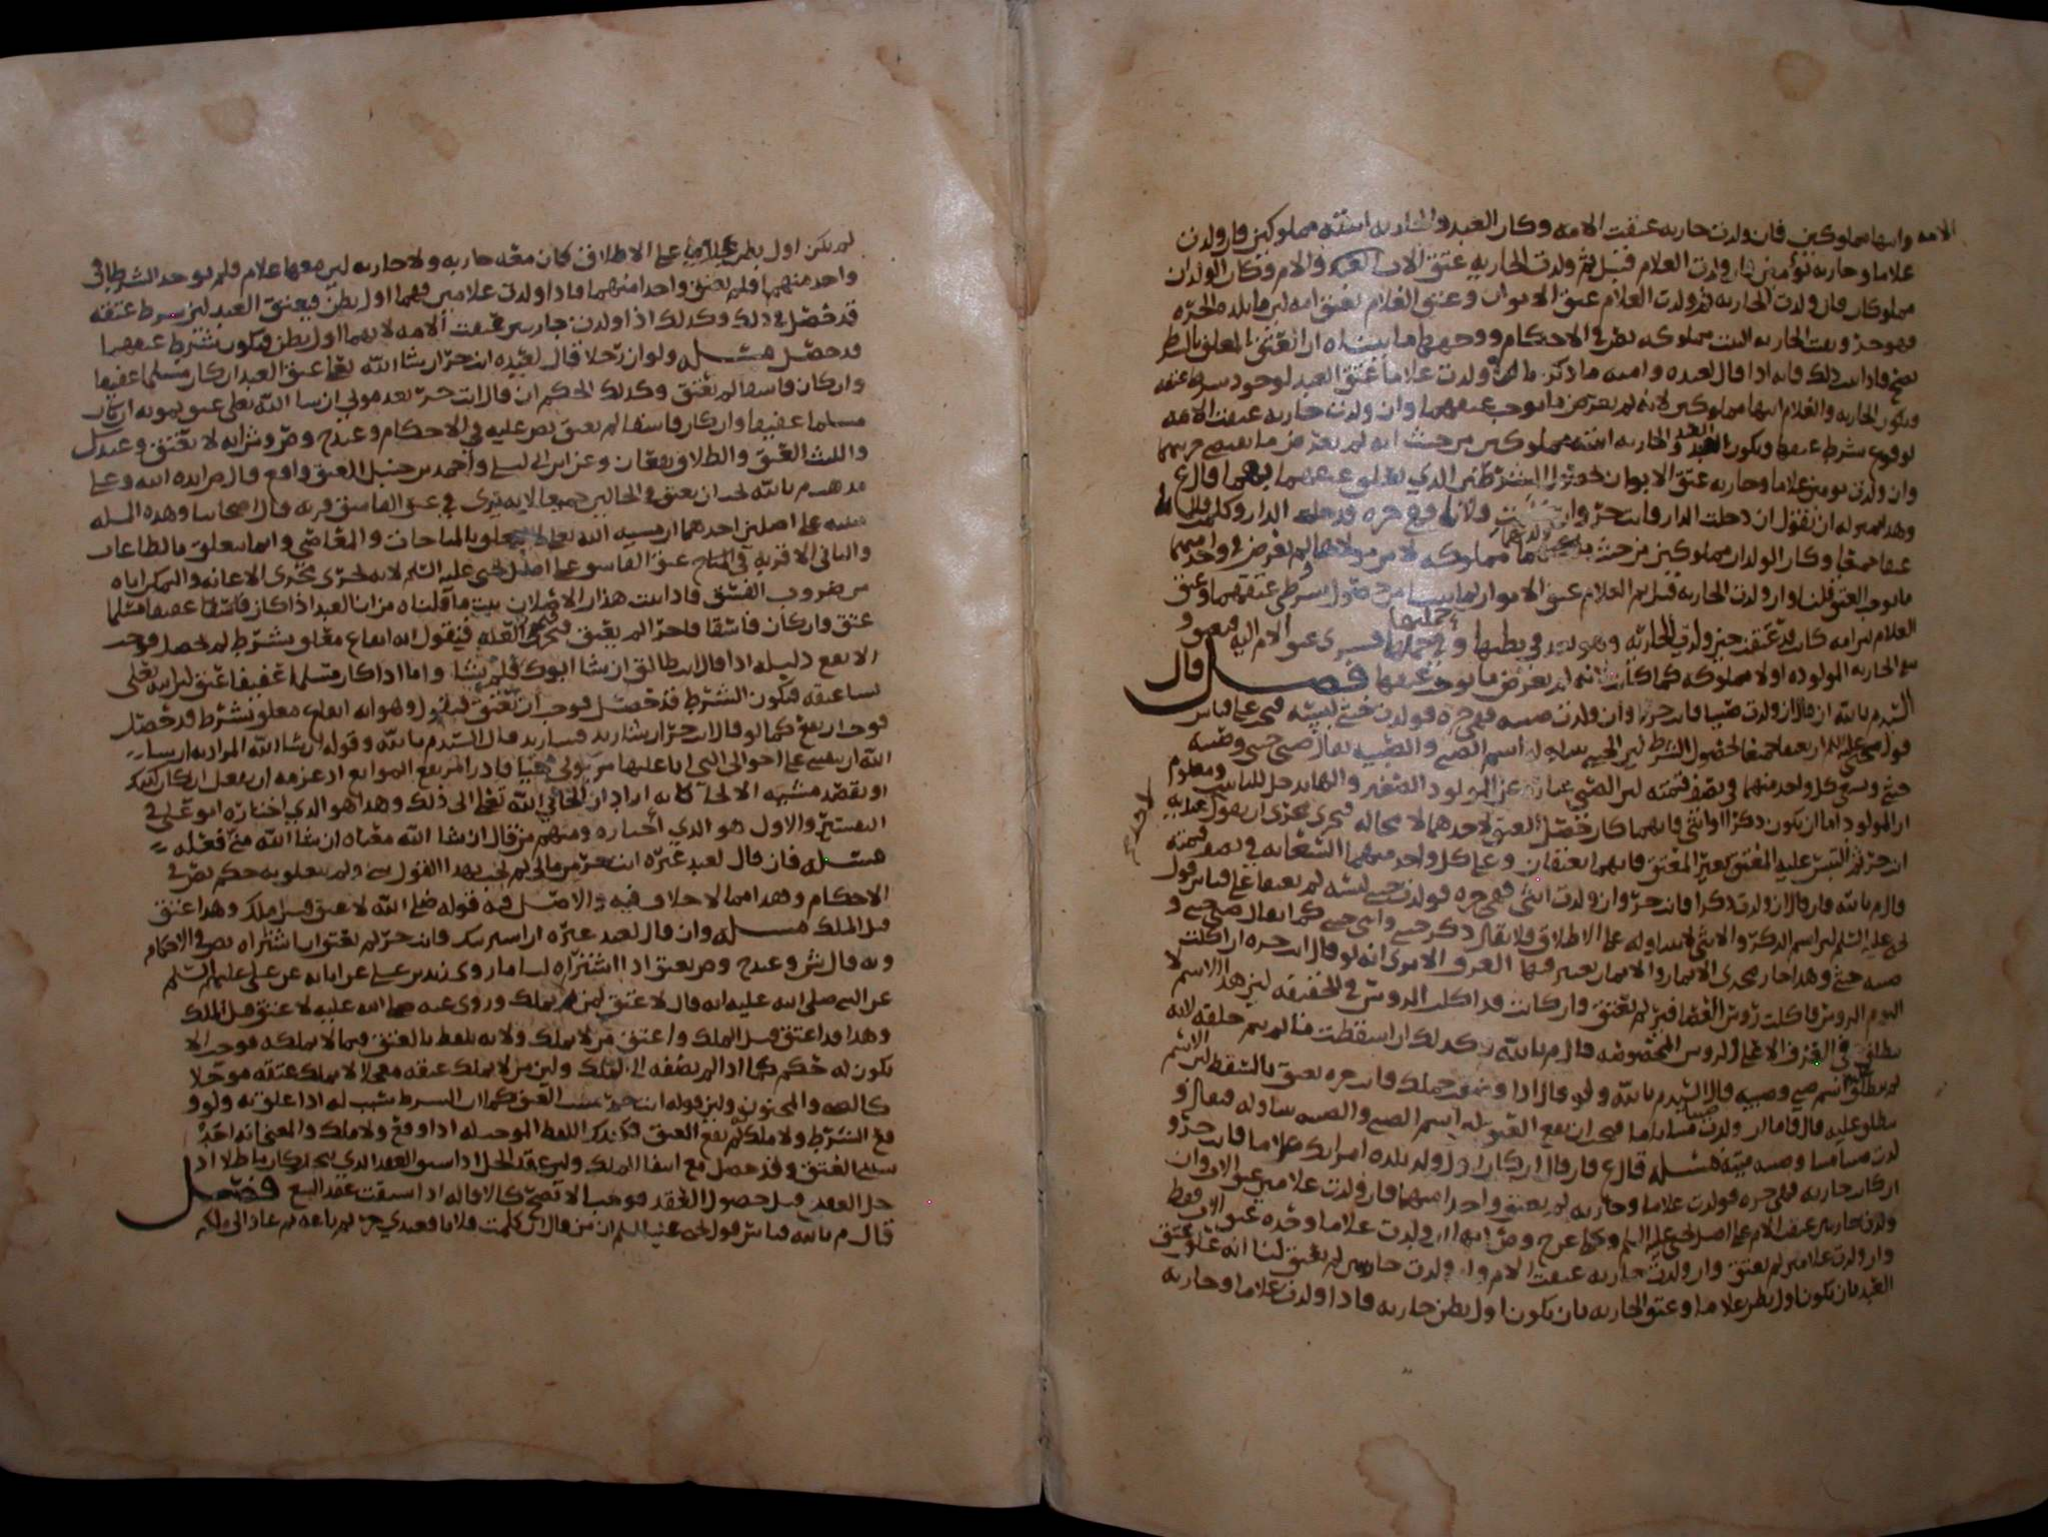 الامه وابنها مملوكين فان ولدت جاريه عتقت الامه وكان العبد والجاريه ابنته مملوكين فان ولدت
غلاما وجاريه توءمين فان ولدت الغلام قبل ثم ولدت الجاريه عتق الاب العبد والام وكان الولدان
مملوكان فان ولدت الجاريه ثم ولدت الغلام عتق الابوان وعتق الغلام بعتق امه لان ما تلده الحره
فهو حر وبقت الجاريه البنت مملوكه نص في الاحكام ووجهه ما بيناه ان العتق المعلق بالشرط
يصح فاذا ثبت ذلك فانه اذا قال لعبده وامته ما ذكر ولدت غلاما عتق العبد لوجود شرط عتقه
وتكون الجاريه والغلام ابنها مملوكين لانه لم يعرض ما يوجب عتقهما وان ولدت جاريه عتقت الامه
لوقوع شرط عتقها ويكون العبد والجاريه ابنته مملوكين من حيث انه لم يعرض ما يقتضي حريتهما
وان ولدت توءمين غلاما وجاريه عتق الابوان لحصول الشرطين الذي تعلق عتقهما بهما
وهذه بمنزله ان نقول ان دخلت الدار فانت حر وان
عتقا جميعا وكان الولدان مملوكين من حيث
ما يوجب العتق قلنا وان ولدت الجاريه قبل ثم الغلام عتق الابوان لما بينا من حصول شرطي عتقهما وعتق
الغلام لان امه كانت قد عتقت حين ولدت الجاريه وهو بعد في بطنها
الجاريه المولوده اولا مملوكه كما كانت لانه لم يعرض ما يوجب عتقها فصل قال
السيد م بالله ان قال ان ولدت صبيا فانت حر وان ولدت صبيه فهي حره فولدت خنثى لبسه فهو على قياس
قول يحيى عليه السلام ان يعتقا جميعا لحصول الشرط
خنثى ويسعى كل واحد منهما في نصف قيمته لان الصبي عباره عن المولود الصغير والهاء تدخل للتانيث ومعلوم
ان المولود اما ان يكون ذكرا او انثى فايهما كان حصل العتق لاحدهما لا محاله فجرى مجرى ان يقول لعبديه
احدكما
انت حر ثم التبس عليه المعتق بغير المعتق فانهما يعتقان وعلى كل واحد منهما السعايه في نصف قيمته
قال م بالله فان قال ان ولدت ذكرا فانت حر وان ولدت انثى فهي حره فولدت خنثى لبسه لم يعتقا على قياس قول
يحيى عليه السلام لان اسم الذكر والانثى لا يتناوله على الاطلاق ولا يقال ذكر خنثى وانثى خنثى كما يقال صبي خنثى و
صبيه خنثى وهذا جار مجرى الايمان والايمان يعتبر فيها العرف الا ترى انه لو قال انت حره ان اكلت
اليوم الروس فاكلت روس العصافير لم تعتق وان كانت قد اكلت الروس في الحقيقه لان هذا الاسم لا
يطلق في العرف الا على الروس المخصوصه قال م بالله وكذلك ان اسقطت ما لم يتم خلقه لانه
لم يطلق اسم صبي وصبيه قال السيد م بالله ولو قال اذا وضعت حملك فانت حره تعتق بالسقط لان الاسم
ينطلق عليه قال فاما ان ولدت صبيا ميتا فيجب ان يقع العتق لان اسم الصبي والصبيه يتناوله فيقال
ولدت صبيا ميتا وصبيه ميته مسئله قال ع فان قال ان كان اول ولد تلده امراتك غلاما فانت حر و
ان كان جاريه فهي حره فولدت غلاما وجاريه لم يعتق واحد منهما فان ولدت غلامين عتق الاب وان
ولدت جاريتين عتقت الام على اصل يحيى عليه السلام
وان ولدت غلامين لم يعتق وان ولدت جاريه عتقت الام وان ولدت جاريتين لم يعتق لنا انه علق عتق
العبد بان يكون اول بطن غلاما وعتق الجاريه بان يكون اول بطن جاريه فاذا ولدت غلاما وجاريه
لم يكن اول بطن غلاما على الاطلاق كان معه جاريه ولا جاريه لان معها غلام فلم يوجد الشرط في
واحد منهما فلم يعتق واحد منهما فاذا ولدت غلامين فهما اول بطن فيعتق العبد لان شرط عتقه
قد حصل في ذلك وكذلك اذا ولدت جاريتين عتقت الامه لانهما اول بطن فيكون شرط عتقها
قد حصل مسئله ولو ان رجلا قال لعبده انت حر ان شا الله تعالى عتق العبد ان كان مسلما عفيفا
وان كان فاسقا لم يعتق وكذلك الحكم ان قال انت حر بعد موتي ان شا الله تعالى عتق بموته ان كان
مسلما عفيفا وان كان فاسقا لم يعتق نص عليه في الاحكام وعند ح وص وش انه لا يعتق وعند ك
والليث العتق والطلاق يقعان وعن ابن ابي ليلى واحمد بن حنبل العتق واقع قال م ايده الله وعلى
مذهب م بالله يجب ان يعتق في الحالين جميعا لانه يرى في عتق الفاسق قربه قال اصحابنا وهذه المسله
مبنيه على اصلين احدهما ان مشيه الله تعالى لا تتعلق بالمباحات والمعاصي وانما تتعلق بالطاعات
والثاني الا قربه في عتق الفاسق على اصل يحيى عليه السلام لانه يجري مجرى الاعانه والتمكن اياه
من ضروب الفسق فاذا ثبت هذان الاصلان ثبت ما قلناه من ان العبد اذا كان عفيفا مسلما
عتق وان كان فاسقا فاجرا لم يعتق فنقول انه ايقاع معلق بشرط لم يحصل فوجب
الا يقع دليله اذا قال انت طالق ان شا ابوك فلم يشا واما اذا كان مسلما عفيفا عتق لان الله تعالى
يشا عتقه فيكون الشرط قد حصل فوجب ان يعتق فنقول وهو انه ايقاع معلق بشرط قد حصل
فوجب ان يقع كما لو قال انت حر ان شا زيد فشا زيد قال السيد م بالله وقوله ان شا الله المراد به ان شا
الله ان يبقيني على احوالي التي انا عليها من كوني حيا قادرا مرتفع الموانع اذ عزمه ان يفعل ان كان كذلك
او يقصد مشيه الالجا كانه اراد ان الجاني الله تعالى الى ذلك وهذا هو الذي اختاره ابو علي في
التفسير والاول هو الذي اختاره ومنهم من قال ان شا الله معناه ان شا الله مني فعله
مسئله فان قال لعبد غيره انت حر من مالي لم يجب بهذا القول شي ولم يتعلق به حكم نص في
الاحكام وهذا مما لا خلاف فيه والاصل فيه قوله صلى الله لا عتق قبل ملك وهذا عتق
قبل الملك مسئله وان قال لعبد غيره ان اشتريتك فانت حر لم يعتق ان اشتراه نص في الاحكام
وبه قال ش وعند ح وص يعتق اذا اشتراه لنا ما روى زيد بن علي عن ابائه عن علي عليهم السلم
عن النبي صلى الله عليه انه قال لا عتق لمن لم يملك وروى عنه صلى الله عليه لا عتق قبل الملك
وهذا قد اعتق قبل الملك واعتق من لا يملك ولانه تلفظ بالعتق فيما لا يملكه فوجب الا
يكون له حكم كما اذا لم يضفه الى الملك ولان من لا يملك عتقه معجلا لا يملك عتقه موجلا
كالصبي والمجنون ولان قوله انت حر سبب العتق كما ان الشرط سبب له اذا علق به ولو و
قع الشرط ولا ملك لم يقع العتق فكذلك اللفظ الموجب له اذا وقع ولا ملك والمعنى انه احد
سببي العتق وقد حصل مع انتفا الملك ولان عقد الحل اذا سبق العقد الذي يحله كان باطلا اذ
حل العقد قبل حصول العقد فوجب الا يصح كالاقاله اذا سبقت عقد البيع فصل
قال م بالله قياس قول يحيى عليه السلم ان من قال ان كلمت فلانا فعبدي حر ثم باعه ثم عاد الى ملكه